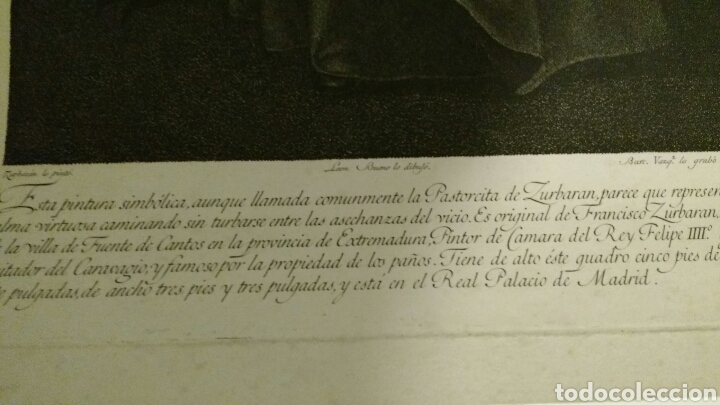 Zurbarán lo pintó.
Leon. Bueno lo dibuxó.
Bart. Vazq.z lo grabó
Esta pintura simbólica, aunque llamada comunmente la Pastorcita de Zurbaran, parece que represen
alma virtuosa caminando sin turbarse entre las asechanzas del vicio. Es original de Francisco Zurbaran,
la villa de Fuente de Cantos en la provincia de Extremadura, Pintor de Camara del Rey Felipe IIII.º
itador del Caravagio, y famoso por la propiedad de los paños. Tiene de alto este quadro cinco pies de
pulgadas, de ancho tres pies y tres pulgadas, y está en el Real Palacio de Madrid.
todocoleccion